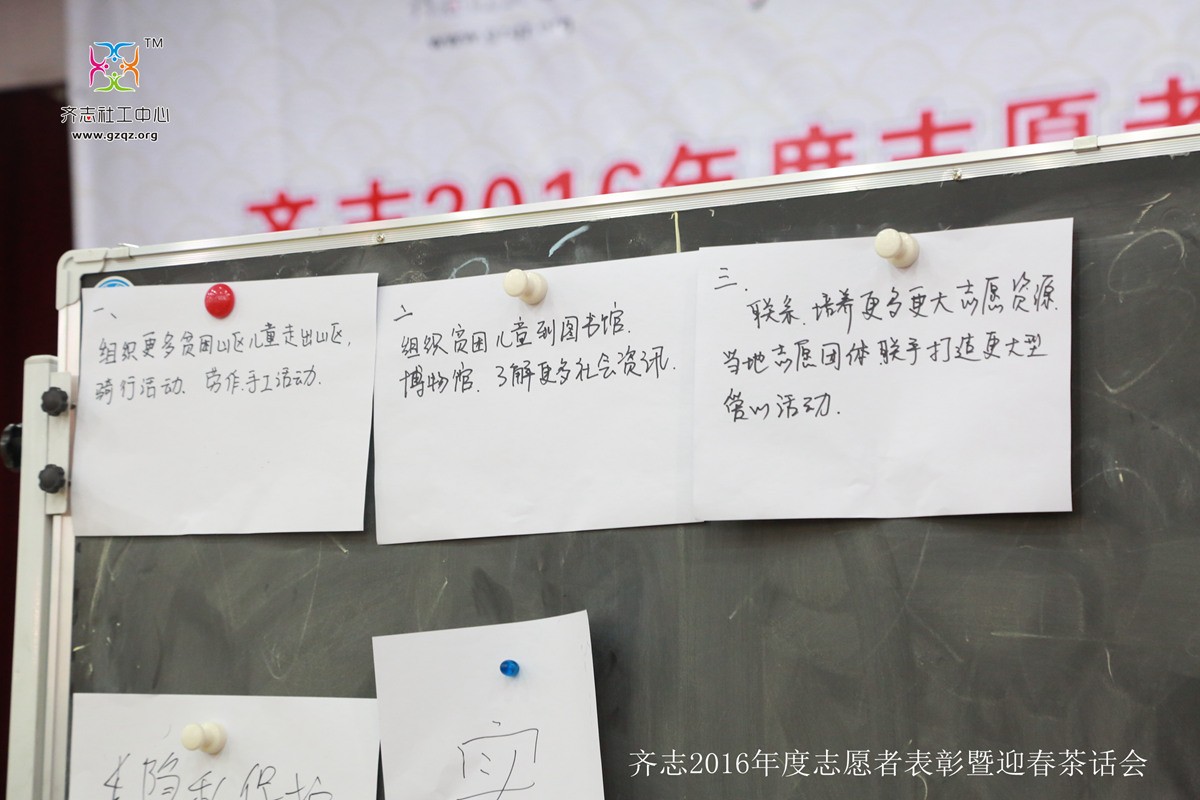 TM
齐志社工中心
www.gzqz.org
齐志2016年度志愿者
一、
组织更多贫困山区儿童走出山区,
骑行活动、劳作.手工活动.
二
组织贫困儿童到图书馆.
博物馆.了解更多社会资讯.
三.
联系.培养更多更大志愿资源
当地志愿团体联手打造更大型
活动.
隐私保护
齐志2016年度志愿者表彰暨迎春茶话会